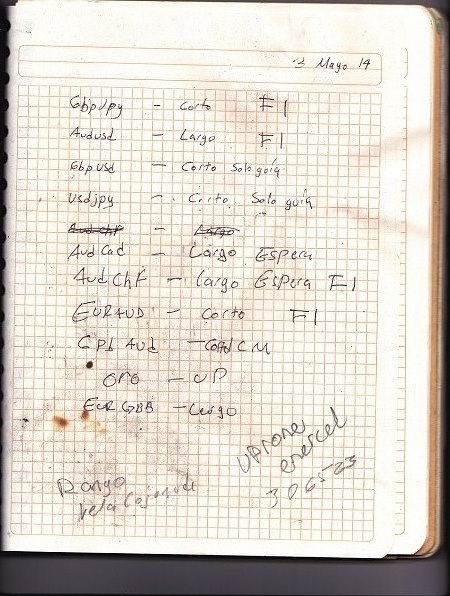 2 Mayo 14
Gbpjpy - Corto F1
Audusd - Largo F1
Gbpusd - Corto Solo guía
Usdjpy - Corto Solo guía
Audchf - Largo
AudCad - Largo Espera
AudChf - largo Espera F1
EURAUD - corto F1
GPb AUD - CM
oro - UP
EUR GBB - Largo
306523
Rango
vela